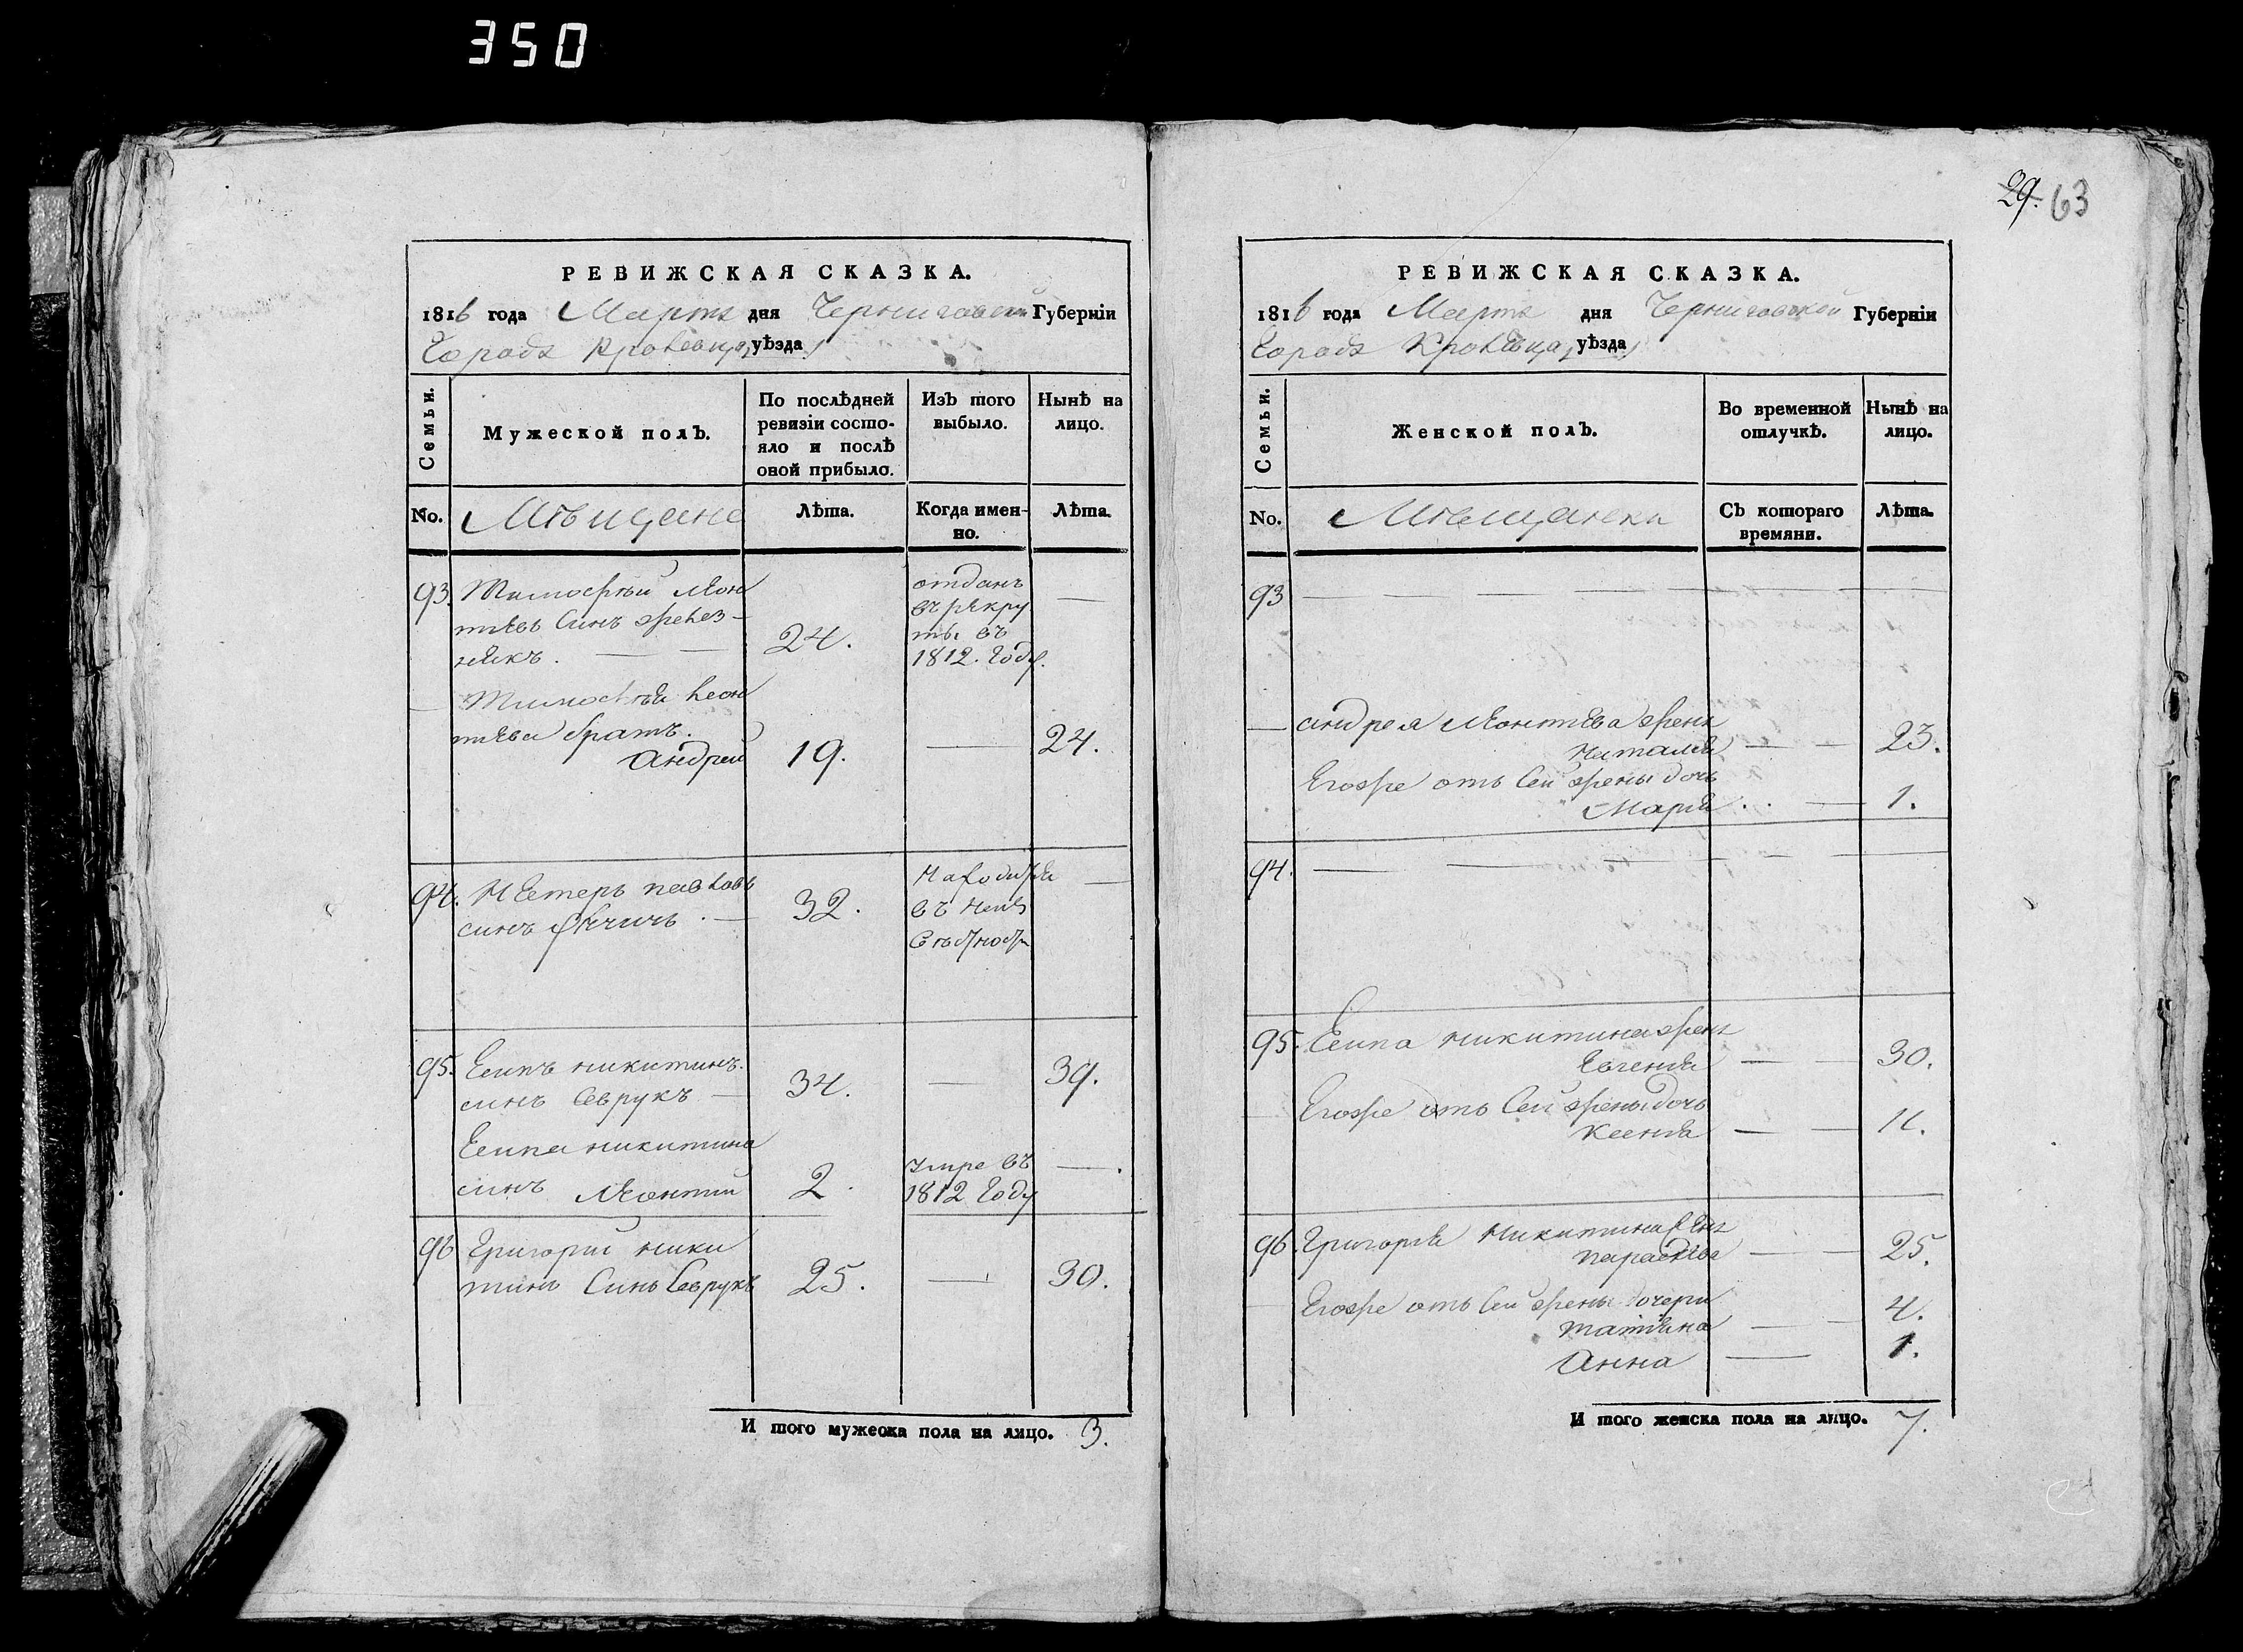 350
РЕВИЖСКАЯ СКАЗКА.
1816 года Марта дня Черниговской Губерніи
Города Кролевца, уѣзда
Семьи.
Мужеской полъ.
По послѣдней
ревизіи состо-
яло и послѣ
оной прибыло.
Изъ того
выбыло.
Нынѣ на
лицо.
No.
Мѣщане
Лѣта.
Когда имен-
но.
Лѣта.
93. Тимофѣй Леон
тіевъ синъ
24.
отданъ
въ рекру
ты въ
1812. году.
Тимофѣя Леон
тіева братъ.
Андрей 19. 24.
94. Нестеръ Павловъ
синъ 32.
Находится
въ
95. Есипъ Никитинъ.
синъ Севрукъ 34. 39.
Есипа Никитина
синъ Леонтий 2.
умре въ
1812 году
96 Григорий Ники
тинъ синъ Севрукъ 25. 30.
И того мужеска пола на лицо. 3.
29. 63
РЕВИЖСКАЯ СКАЗКА.
1816 года Марта дня Черниговской Губерніи
Города Кролевца, уѣзда
Семьи.
Женской полъ.
Во временной
отлучкѣ.
Нынѣ на
лицо.
No.
Мѣщанки
Съ котораго
времяни.
Лѣта.
93
Андрея Леонтіева жена
Наталія 23.
Егожъ отъ сей жены дочь
Марія 1.
94.
95. Есипа Никитина жена
Евгенія 30.
Егожъ отъ сей жены дочь
Ксенія 11.
96. Григорія Никитина жена
25.
Егожъ отъ сей жены дочери
Татіяна 4.
Анна 1.
И того женска пола на лицо. 7.